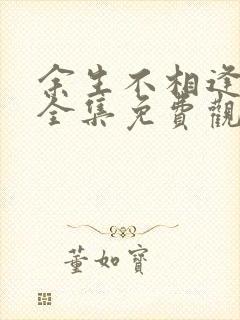 余生不相逢
全集免費觀
董如寶